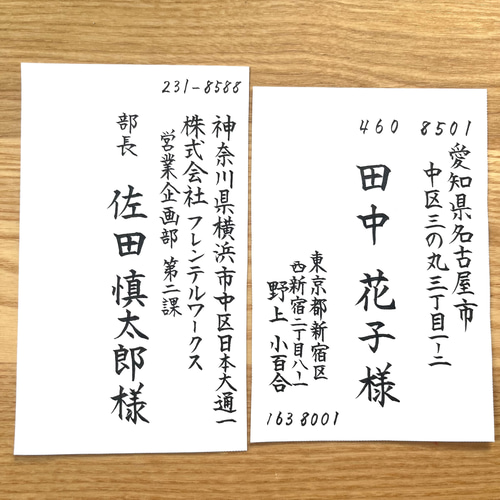 231-8588
神奈川県横浜市中区日本大通一
株式会社 フレンテルワークス
営業企画部 第二課
部長 佐田慎太郎様
460 8501
愛知県名古屋市
中区三の丸三丁目一ー二
田中 花子様
東京都新宿区
西新宿二丁目八ー一
野上 小百合
163 8001